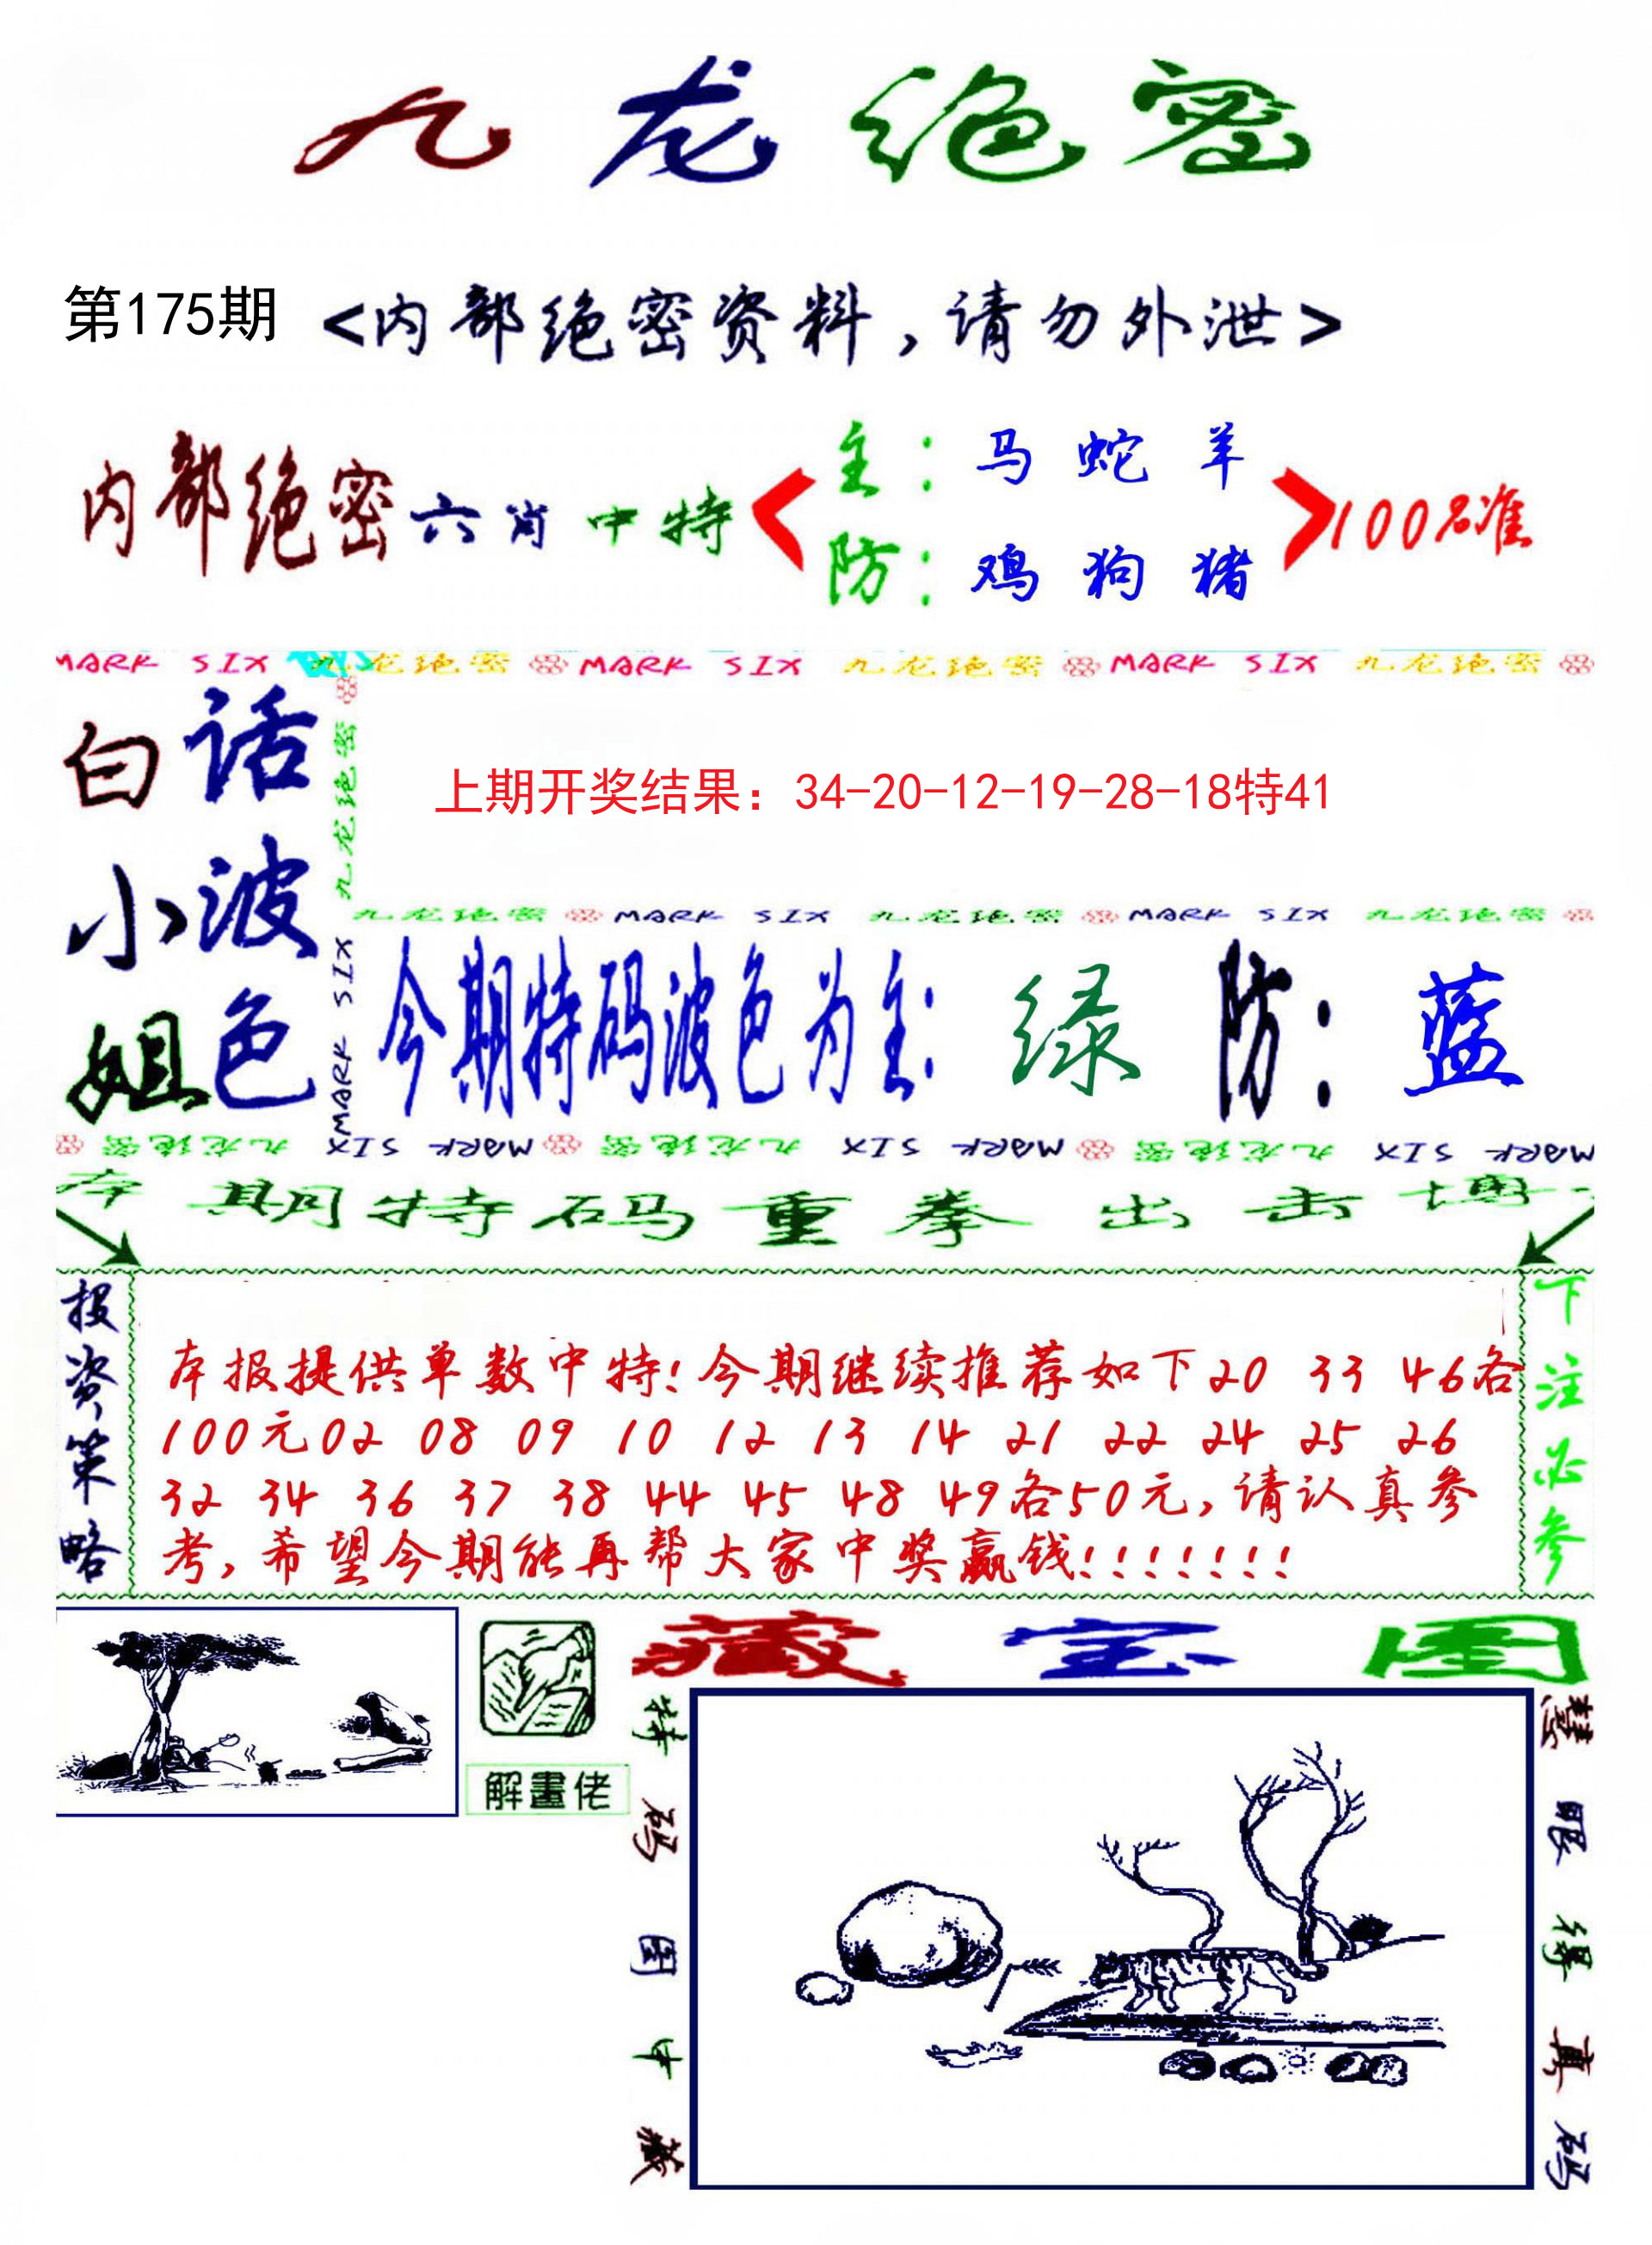 九龙绝密
第175期 <内部绝密资料,请勿外泄>
内部绝密六肖中特
主：马 蛇 羊
防：鸡 狗 猪
100%准
MARK SIX 九龙绝密 MARK SIX 九龙绝密 MARK SIX 九龙绝密
白小姐
话波色
九龙绝密
MARK SIX
上期开奖结果：34-20-12-19-28-18特41
九龙绝密 MARK SIX 九龙绝密 MARK SIX 九龙绝密
今期特码波色为主: 绿 防：蓝
九龙绝密 MARK SIX 九龙绝密 MARK SIX 九龙绝密 MARK SIX
本期特码重拳出击博
投资策略
本报提供单数中特!今期继续推荐如下20 33 46各
100元02 08 09 10 12 13 14 21 22 24 25 26
32 34 36 37 38 44 45 48 49各50元,请认真参
考,希望今期能再帮大家中奖赢钱!!!!!!!
下注必参
解畫佬
藏宝图
特码图中藏
慧眼得真码